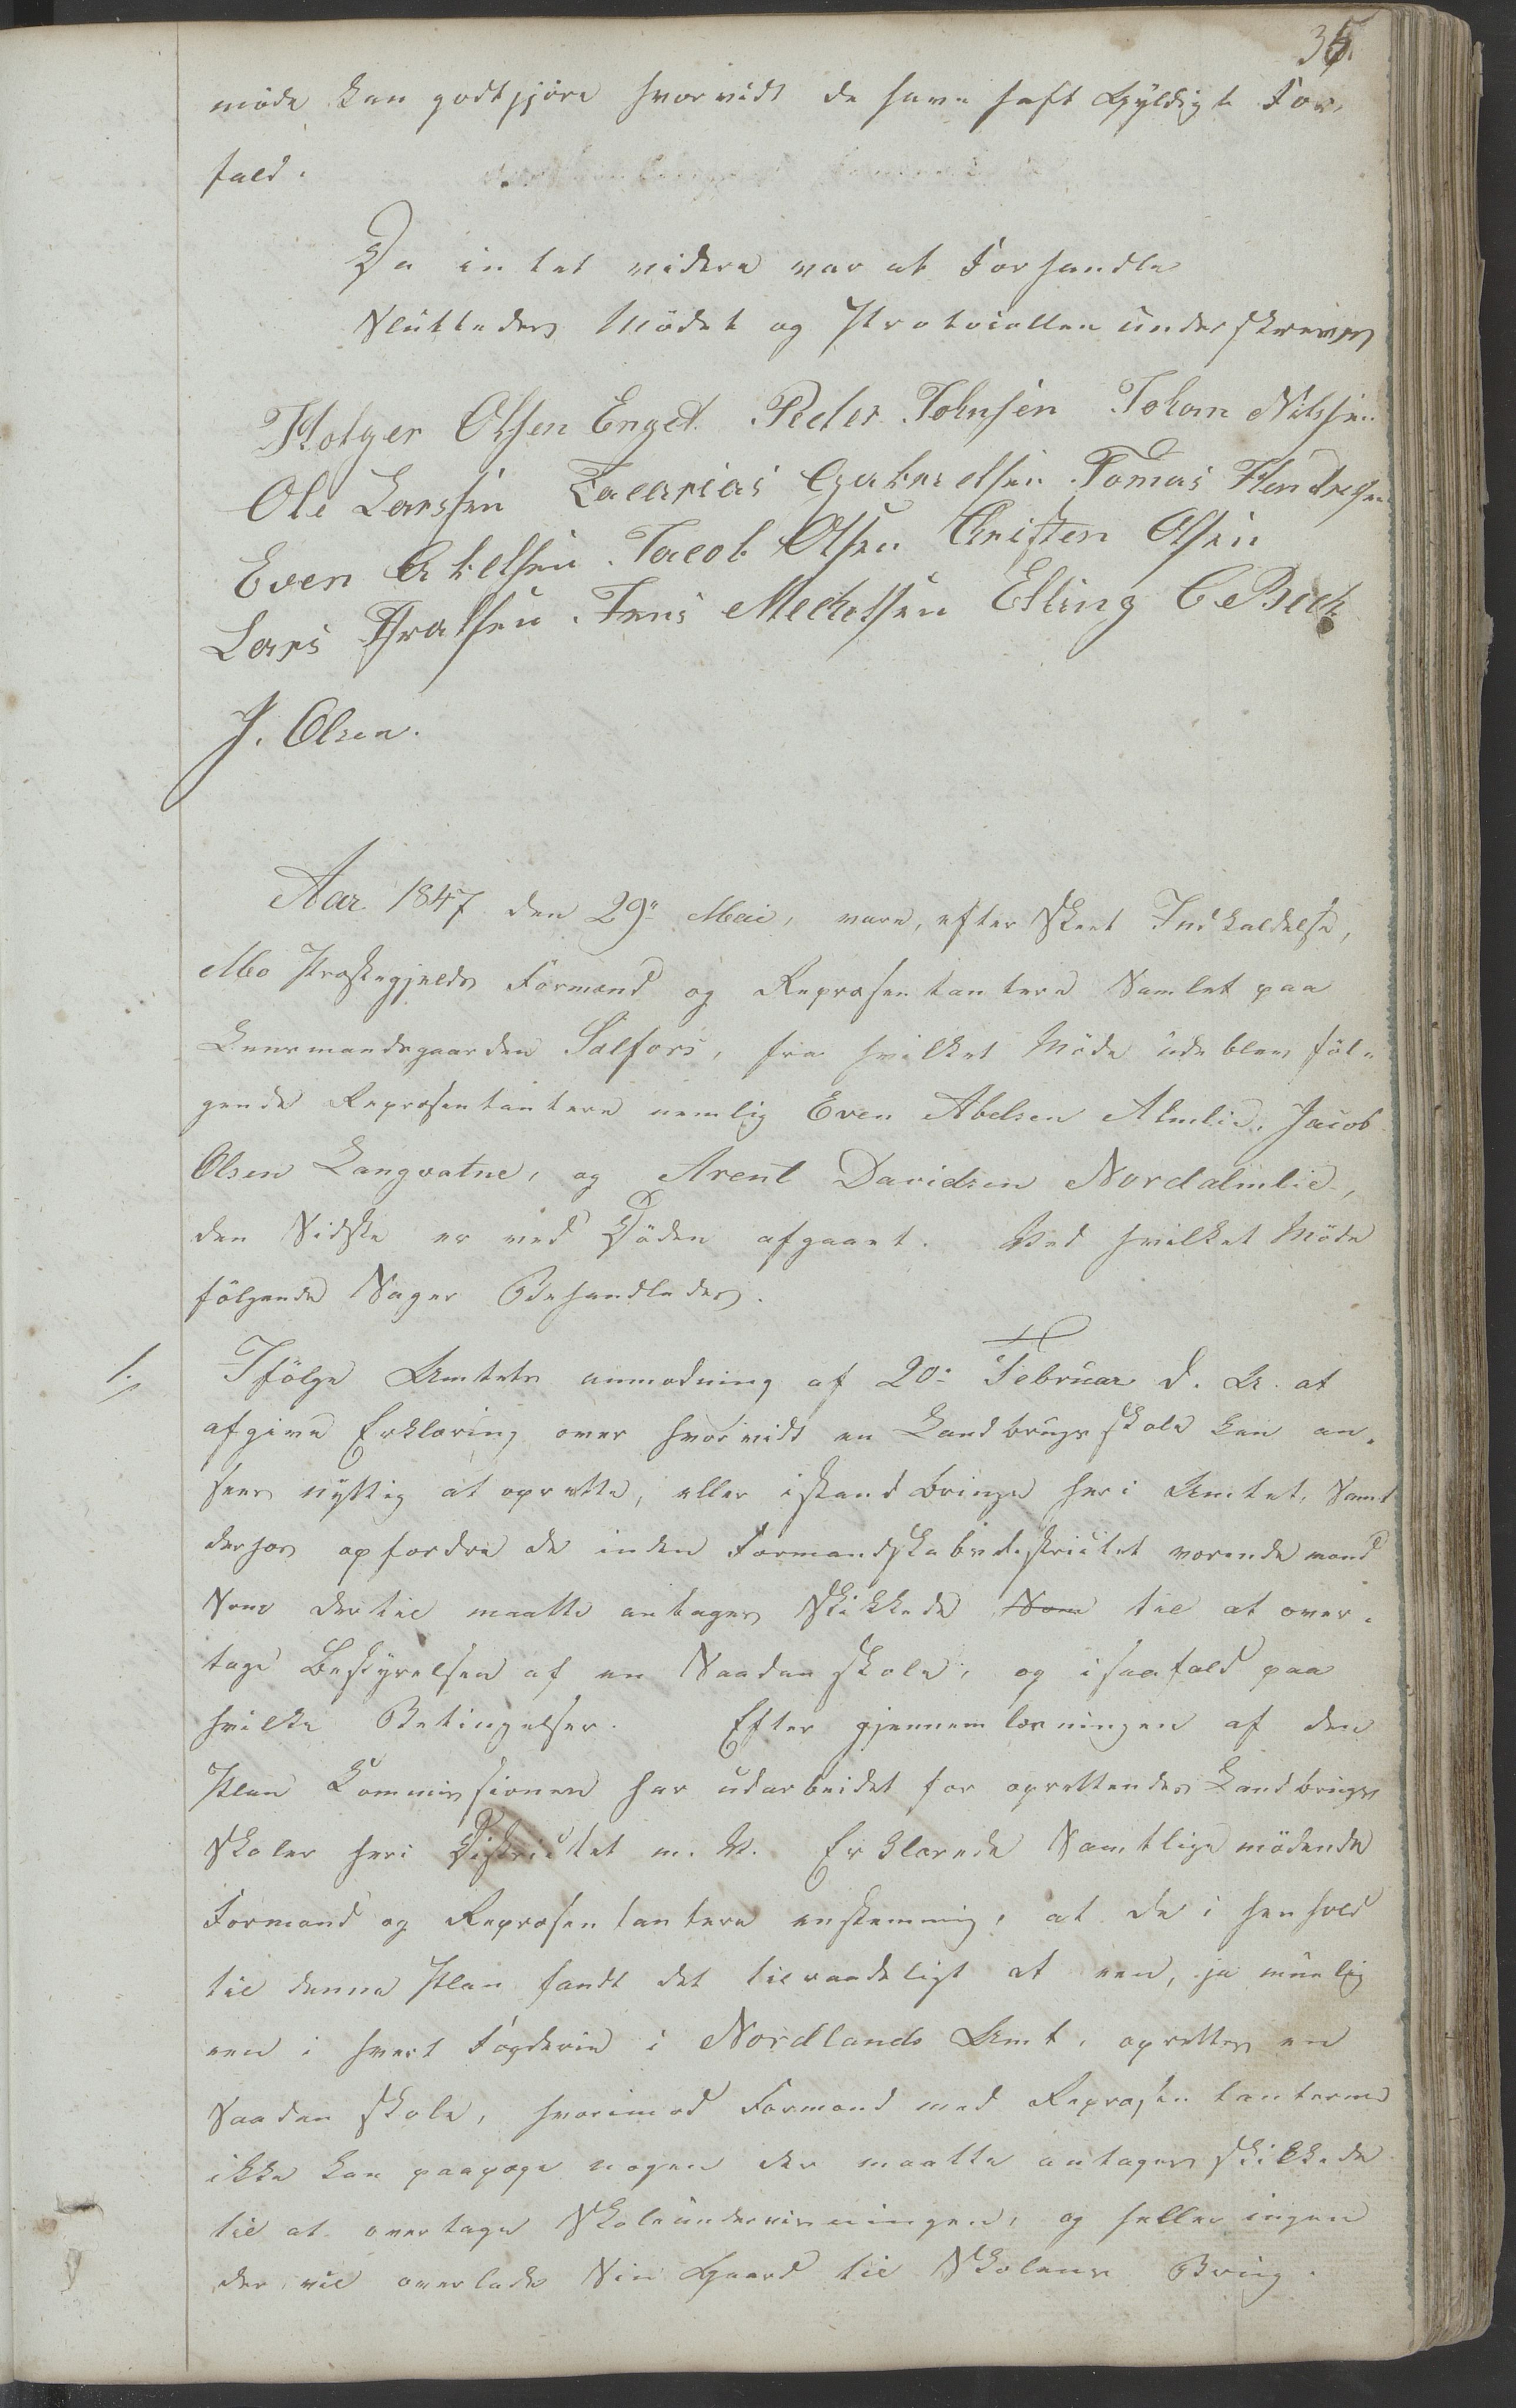 35.
møde kan godtgjöre hvorvidt de have haft Gyldigt For,
fald.
Da intet videre var at Forhandle
Sluttedes Mödet og Protocollen underskreves
Holger Olsen Enget. Peder Johnsen Johan Nilssen
Ole Larssen Zacarias Gabrielsen Tomas Hendresen
Even Abelsen. Jacob Olsen Cristen Olsen
Lars Isralsen. Jens Mechelsen Elling C. Beck
J. Olsen.
Aar 1847 den 29" Mai, vare, efter Skeet Indkaldelse,
Mo Præstegjelds Formænd og Repræsentantere Samlet paa
Lensmandsgaarden Sálfors, fra hvilket Møde udeblev föl-
gende Repræsentantere nemlig Even Abelsen Almlie, Jacob
Olsen Langvatne, og Arent Davidsen Nordalmlie,
den Sidste er ved Döden afgaaet. Ved hvilket Møde
fölgende Sager Behandledes.
1. Ifölge Amtets anmodning af 20: Februar d. A. at
afgive Erklæring over hvorvidt en Landbrugsskole kan an-
sees nyttig at oprette, eller istandbringe her i Amtet, Samt
derhos opfordre de inden Formandskabsdistrictet værende mænd
Som dertil maatte antages Skikkede Som til at over-
tage Bestyrelsen af en Saadan skole, og isaafald paa
hvilke Betingelser. Efter gjennemlæsningen af den
Plan Commissionen har udarbeidet for oprettendes Landbrugs
Skoler her i Districtet m. V. Erklærede Samtlige mödende
Formænd og Repræsentantere enstemmig, at de i henhold
til denne Plan fandt det tilraadeligt at een, ja muelig
een i hvert Fogderie i Nordlands Amt, oprettes en
Saadan skole, hvorimod Formænd med Repræsentanterne
ikke kan paapege nogen der maatte antages skikkede
til at overtage Skoleundervisningen, og heller ingen
der vil overlade Sin Gaard til Skolens Brug.